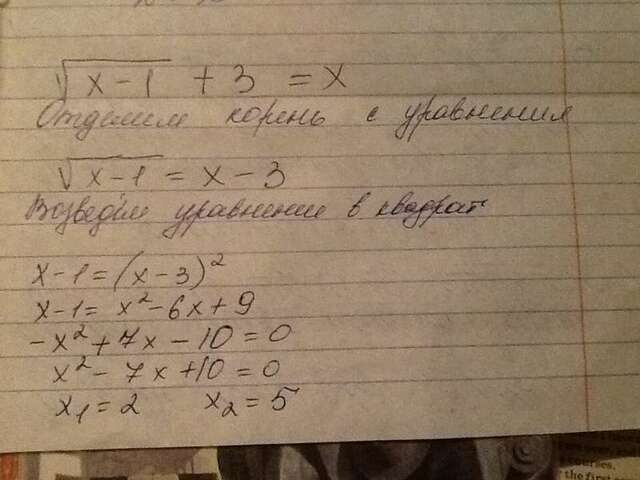 √x-1 + 3 = x
Отделим корень с уравнения
√x-1 = x-3
Возведём уравнение в квадрат
x-1=(x-3)²
x-1= x²-6x+9
-x²+7x-10=0
x²-7x+10=0
x₁=2 x₂=5
courses.
the first